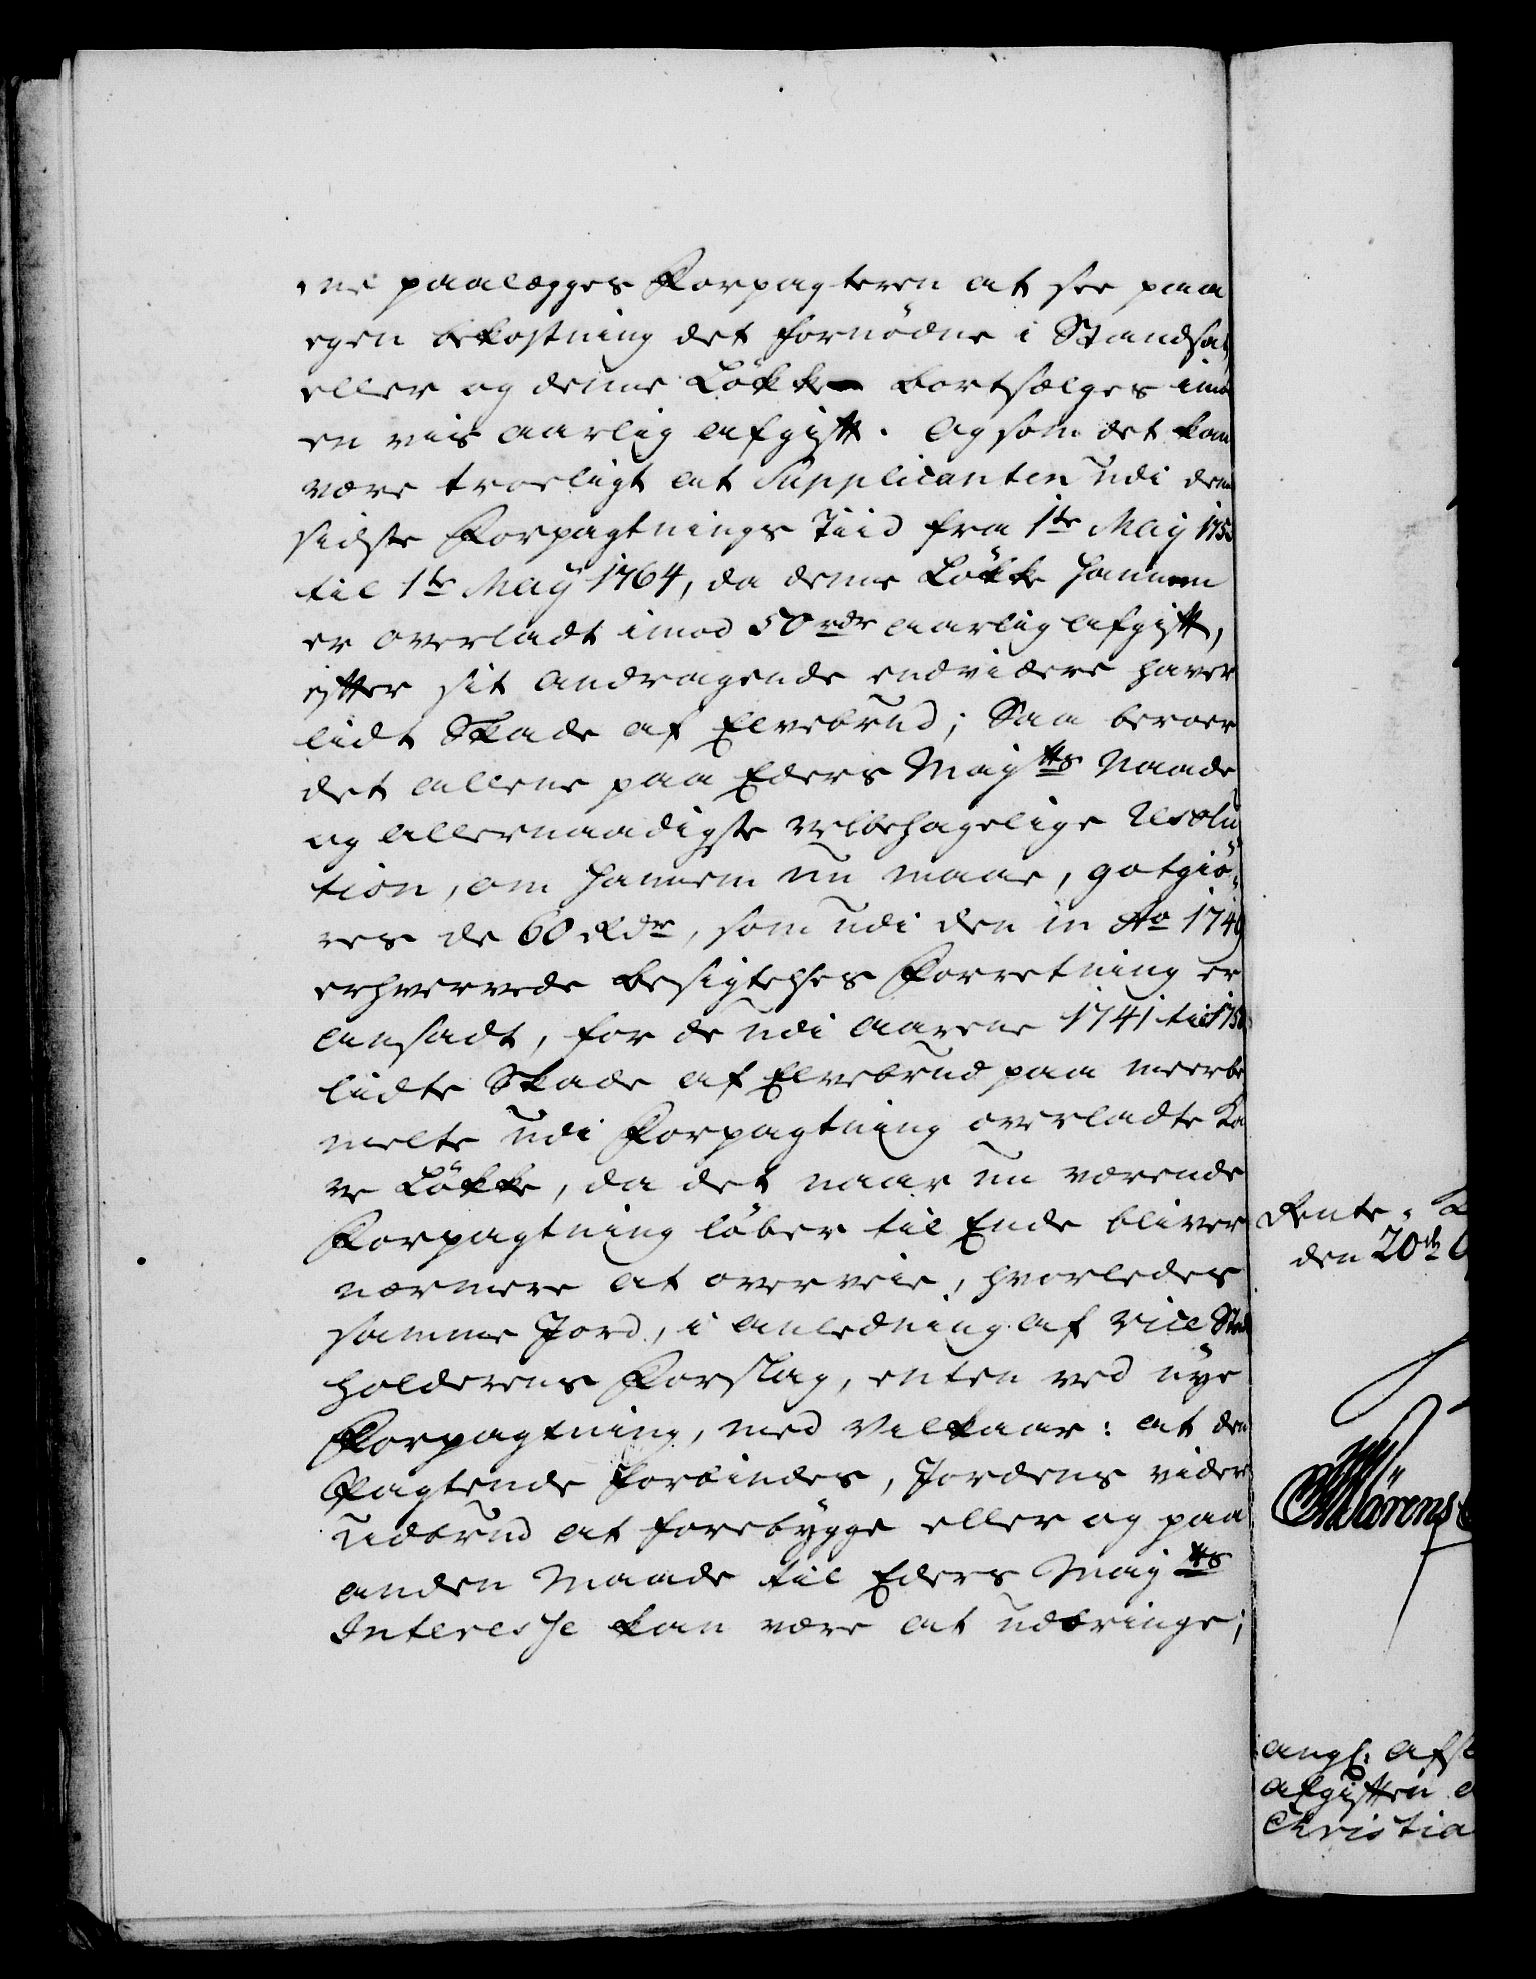 ne paalegges Forpagteren at see paa
egen bekostning det fornödne i Stand sat,
eller og denne Lökke bortselges imod
en vis aarlig afgift. Og som det kan
være troeligt at Supplicanten udi den
sidste Forpagtnings Tiid fra 1te Maij 175
til 1te Maij 1764, da denne Lökke hannem
er overladt imod 50 rdr aarlig afgift,
efter sit andragende endvidere haver
lidt Skade af Elvebrud; Saa beroer
det allene paa Eders Mayts Naade
og allernaadigste velbehagelige Resolu
tion, om hannem nu maae, gotgiö-
res de 60 Rdr, som udi den in Ao 1749
erhvervede besigtelses Forretning er
ansadt, for de udi aarene 1741 til 175
lidte Skade af Elvebrud paa meerbe
melte udi Forpagtning overladte Ko
ve Lökke, da det naar nu værende
Forpagtning löber til Ende bliver
nærmere at overveie, hvorledes
samme Jord, i anledning af Vice Stat
holderens Forslag, enten ved nye
Forpagtning, med Vilkaar: at den
Pagtende forbindes, Jordens videre
udbrud at forebygge eller og paa
anden Maade til Eders Mayts
Interesse kan være at udbringe;
Rente-K
den 20de O
angl: afsl
afgiften
Christia